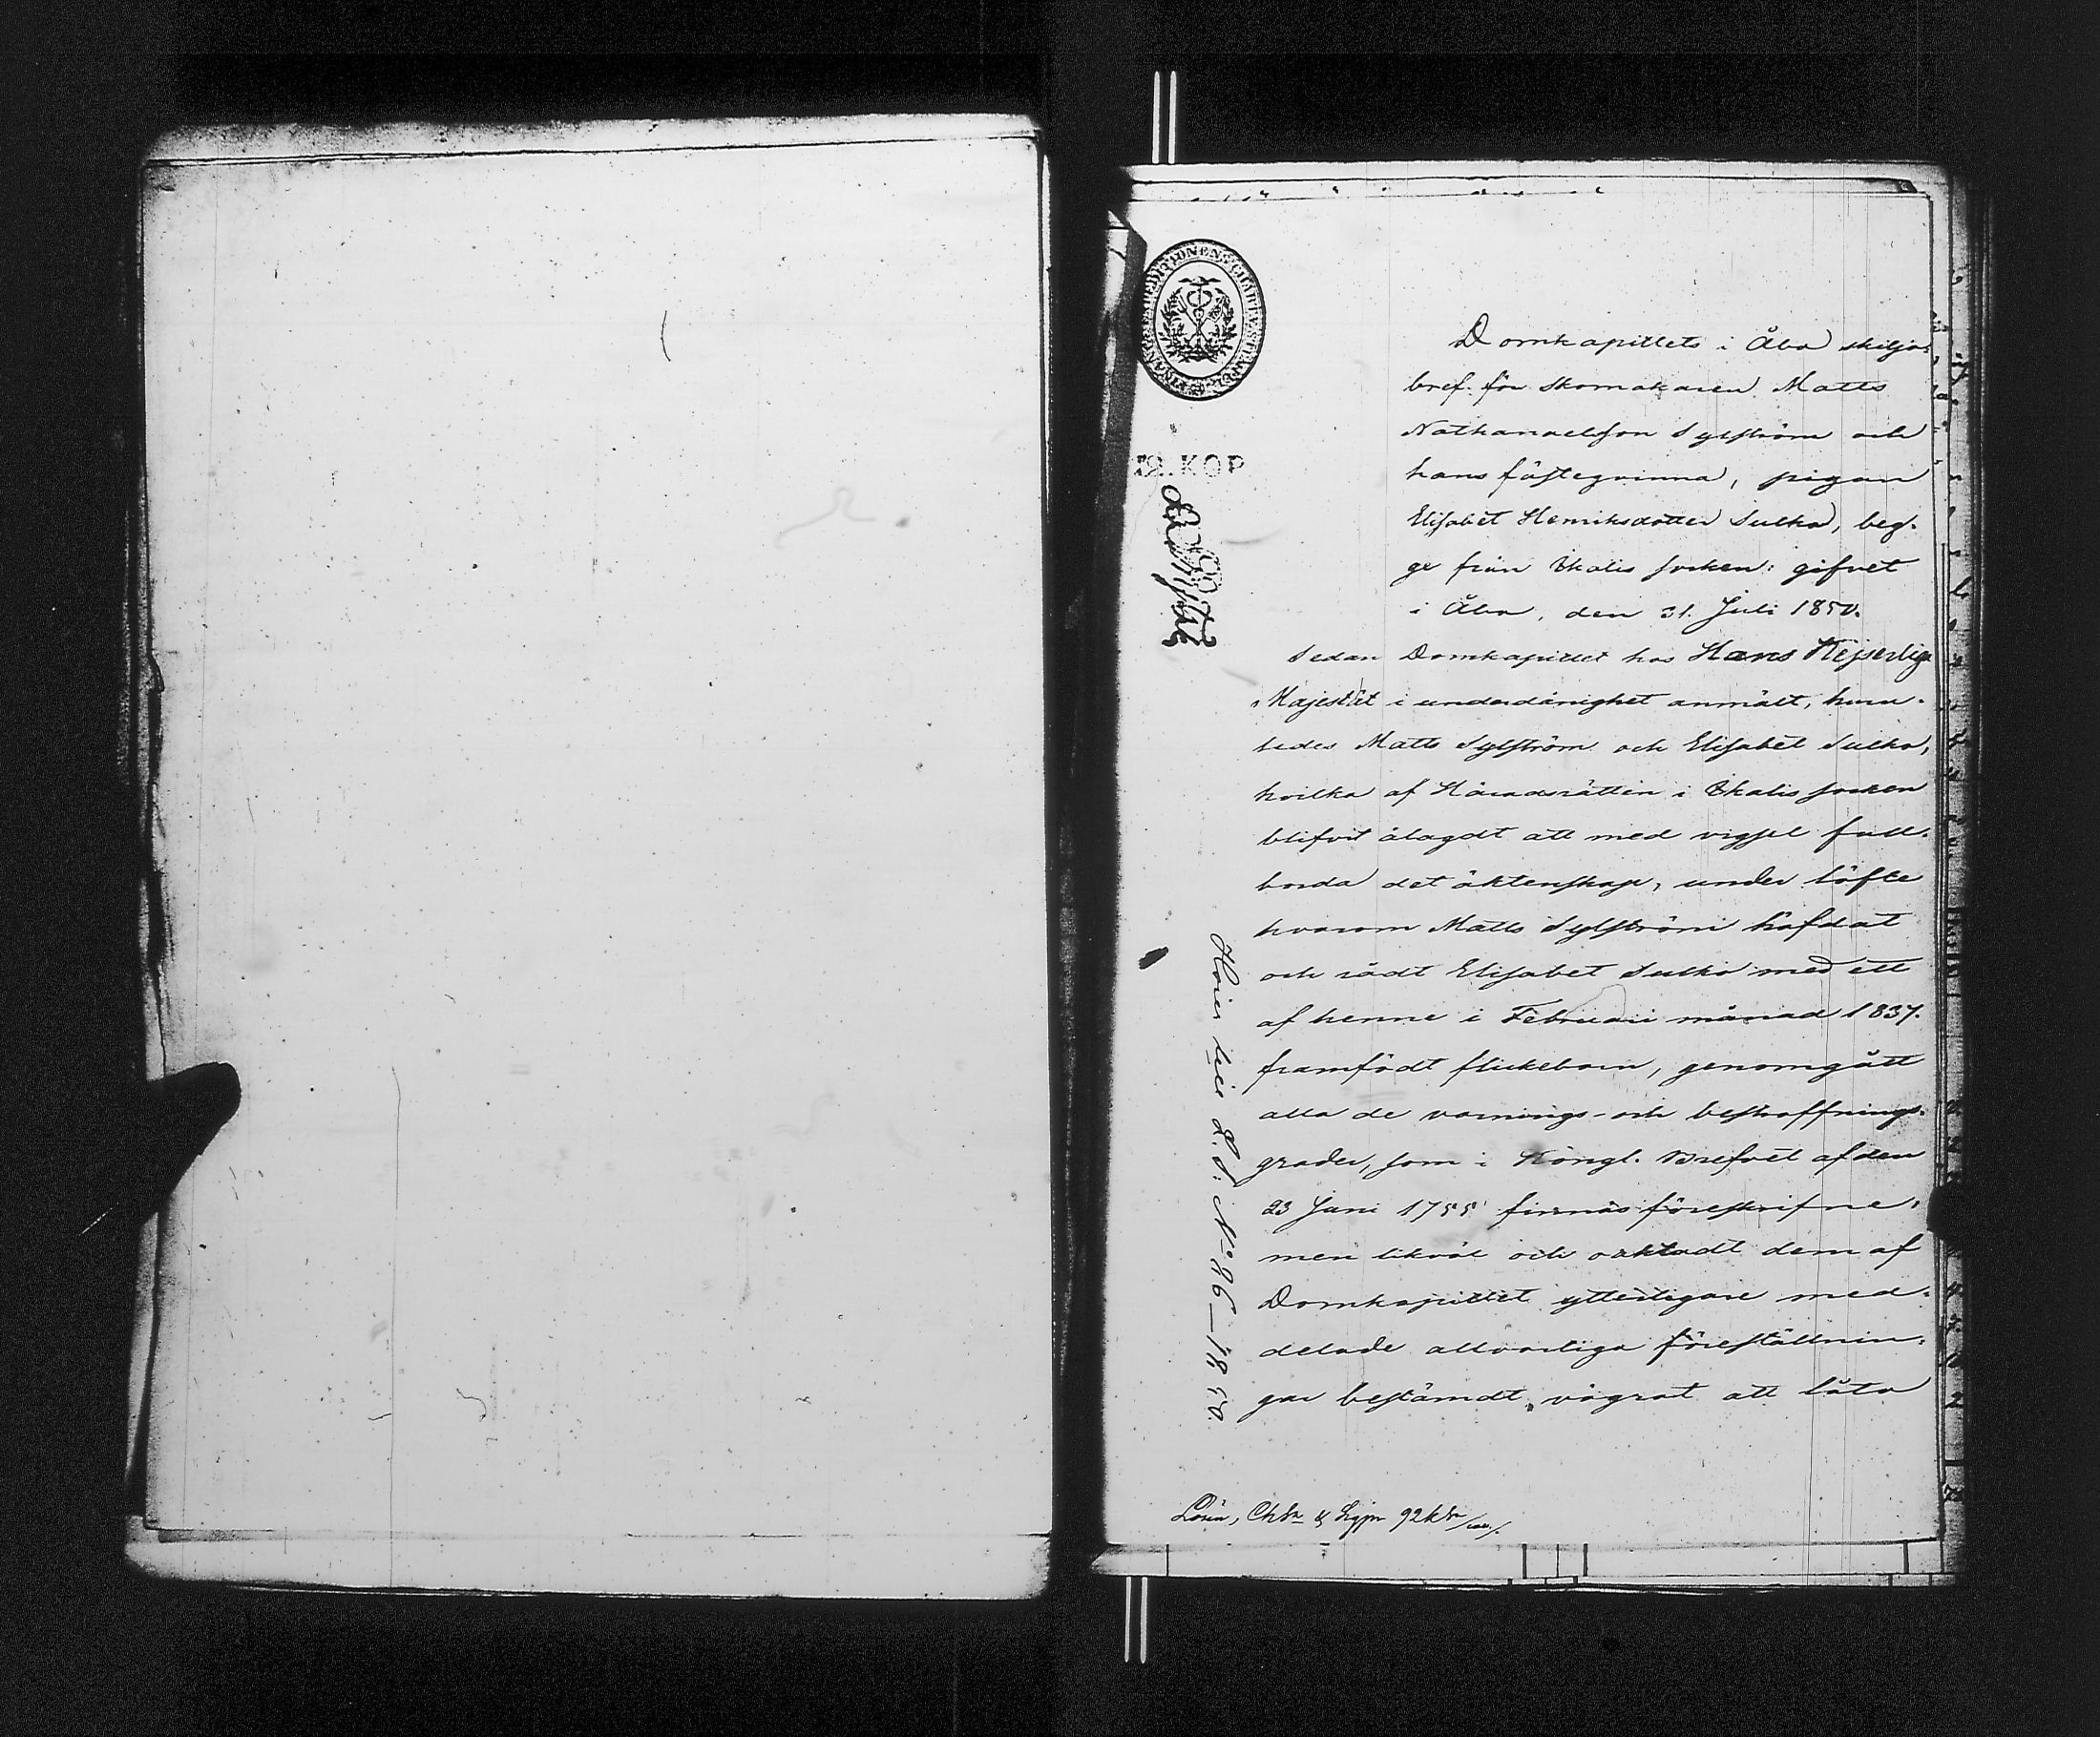 Domkapitlets i Åbo skiljo-
bref för skomakaren Matts
Nathanaelsson Sylström och
hans fästeqvinna, pigan
Elisabet Henriksdotter Sulko, beg-
ge från Ikalis socken: gifvet
i Åbo, den 31. Juli 1850.
Sedan Domkapitlet hos Hans Kejserliga
Majestät i underdånighet anmält, huru-
ledes Matts Sylström och Elisabet Sulko,
hvilka af Häradsrätten i Ikalis socken
blifvit ålagdt att med vigsel full-
borda det äktenskap, under löfte
hvarom Matts Sylström häfdat
och rådt Elisabet Sulko med ett
af henne i Februari månad 1837.
framfödt flickebarn, genomgått
alla de varnings- och bestraffnings-
grader, som i Kongl. Brefvet af den
23 Juni 1755 finnas föreskrifne,
men likväl och oaktadt dem af
Domkapitlet ytterligare med-
delade allvarliga föreställnin-
gar bestämdt vägrat att låta
32. KOP
Hörer till L. S: No 86–1850.
Lösen, Chta &